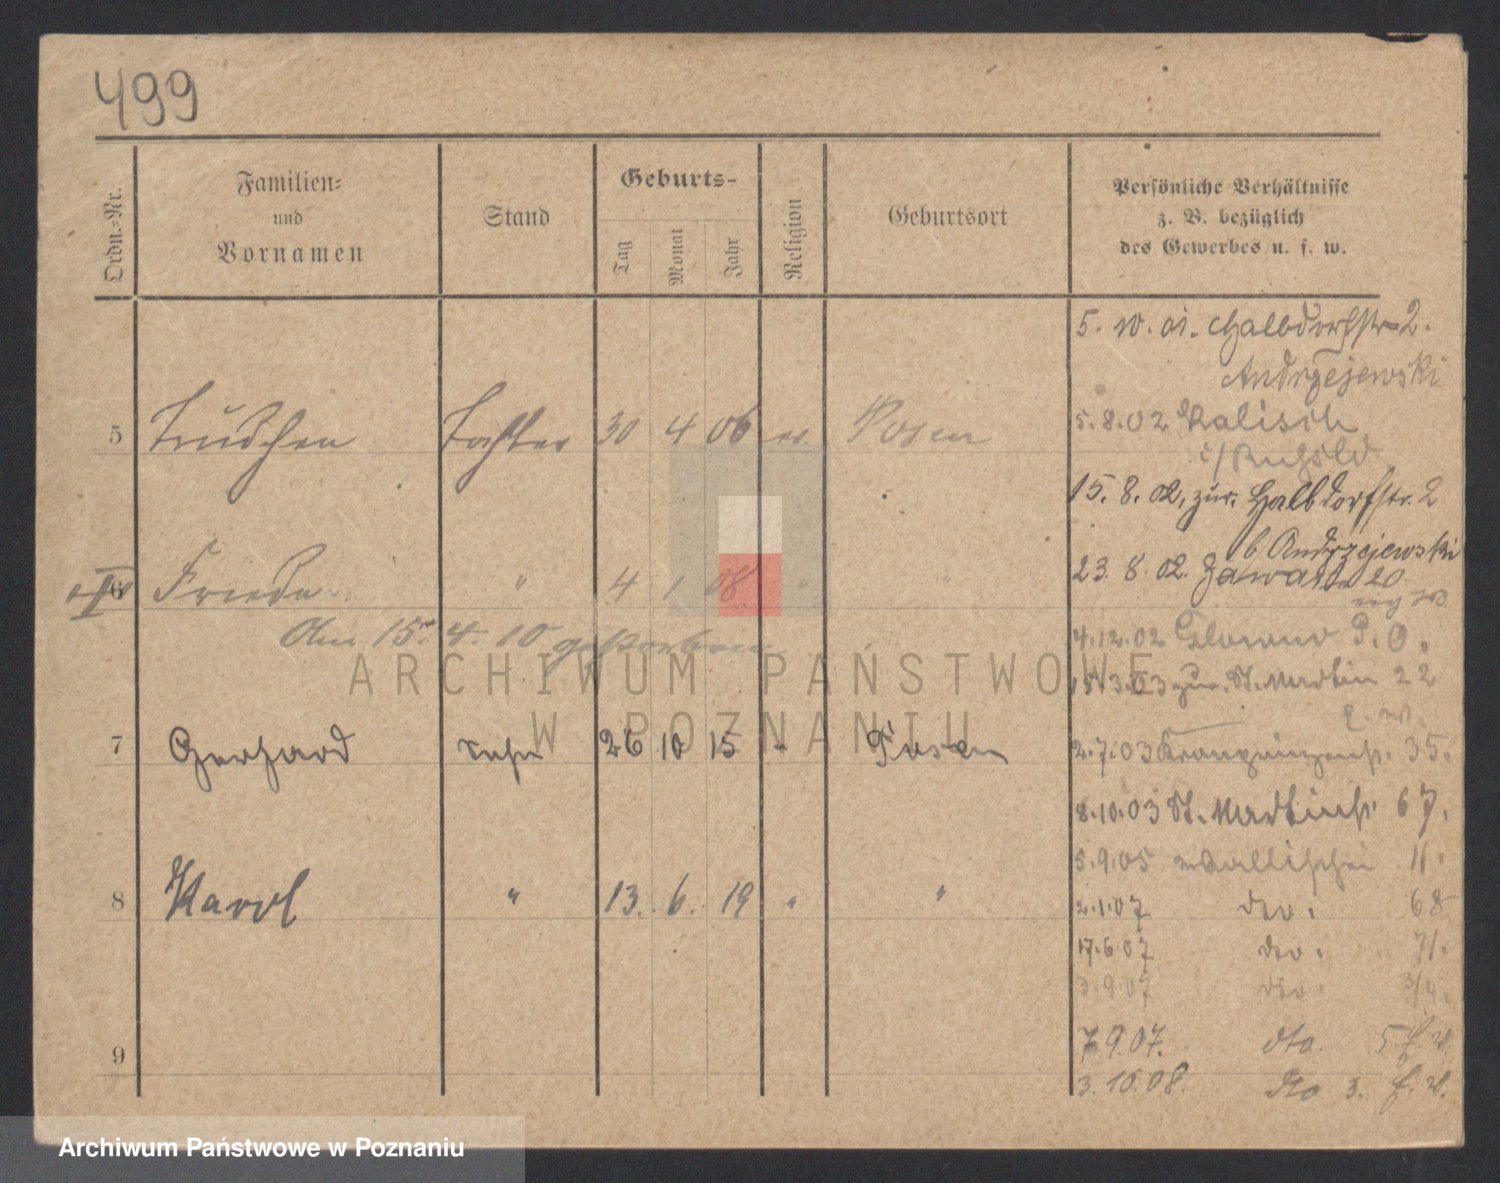 499
Ordn.-Nr.
Familien-
und
Vornamen
Stand
Geburts-
Tag
Monat
Jahr
Religion
Geburtsort
Persönliche Verhältnisse
z. B. bezüglich
des Gewerbes u. s. w.
5. 10. 01. Halbdorfstr 2.
Andrzejewski
5 Trudchen Tochter 30 4 06 ev. Posen
5.8.02 Kalisch
i/Rußld
15. 8. 02, zur. Halbdorfstr. 2
b Andrzejewski
6 Frieda " 4 1 08 " "
23. 8. 02. Zawade 20
Am 15t 4. 10 gestorben
4.12.02 P. O.
15.3.03 zur. St. Martin 22
7 Gerhard Sohn 26 10 15 " Posen
2.7.03 Kronprinzenstr. 35.
8.10.03 St. Martinstr. 67.
5.9.05 Wallischei 11.
8 Karol " 13. 6. 19 " "
2.1.07 dto. 68
17.6.07 dto. 71.
3.9.07 dto. 3/4.
9
7.9.07. dto. 5.
3.10.08. dto 3.
ARCHIWUM PAŃSTWOWE
W POZNANIU
Archiwum Państwowe w Poznaniu